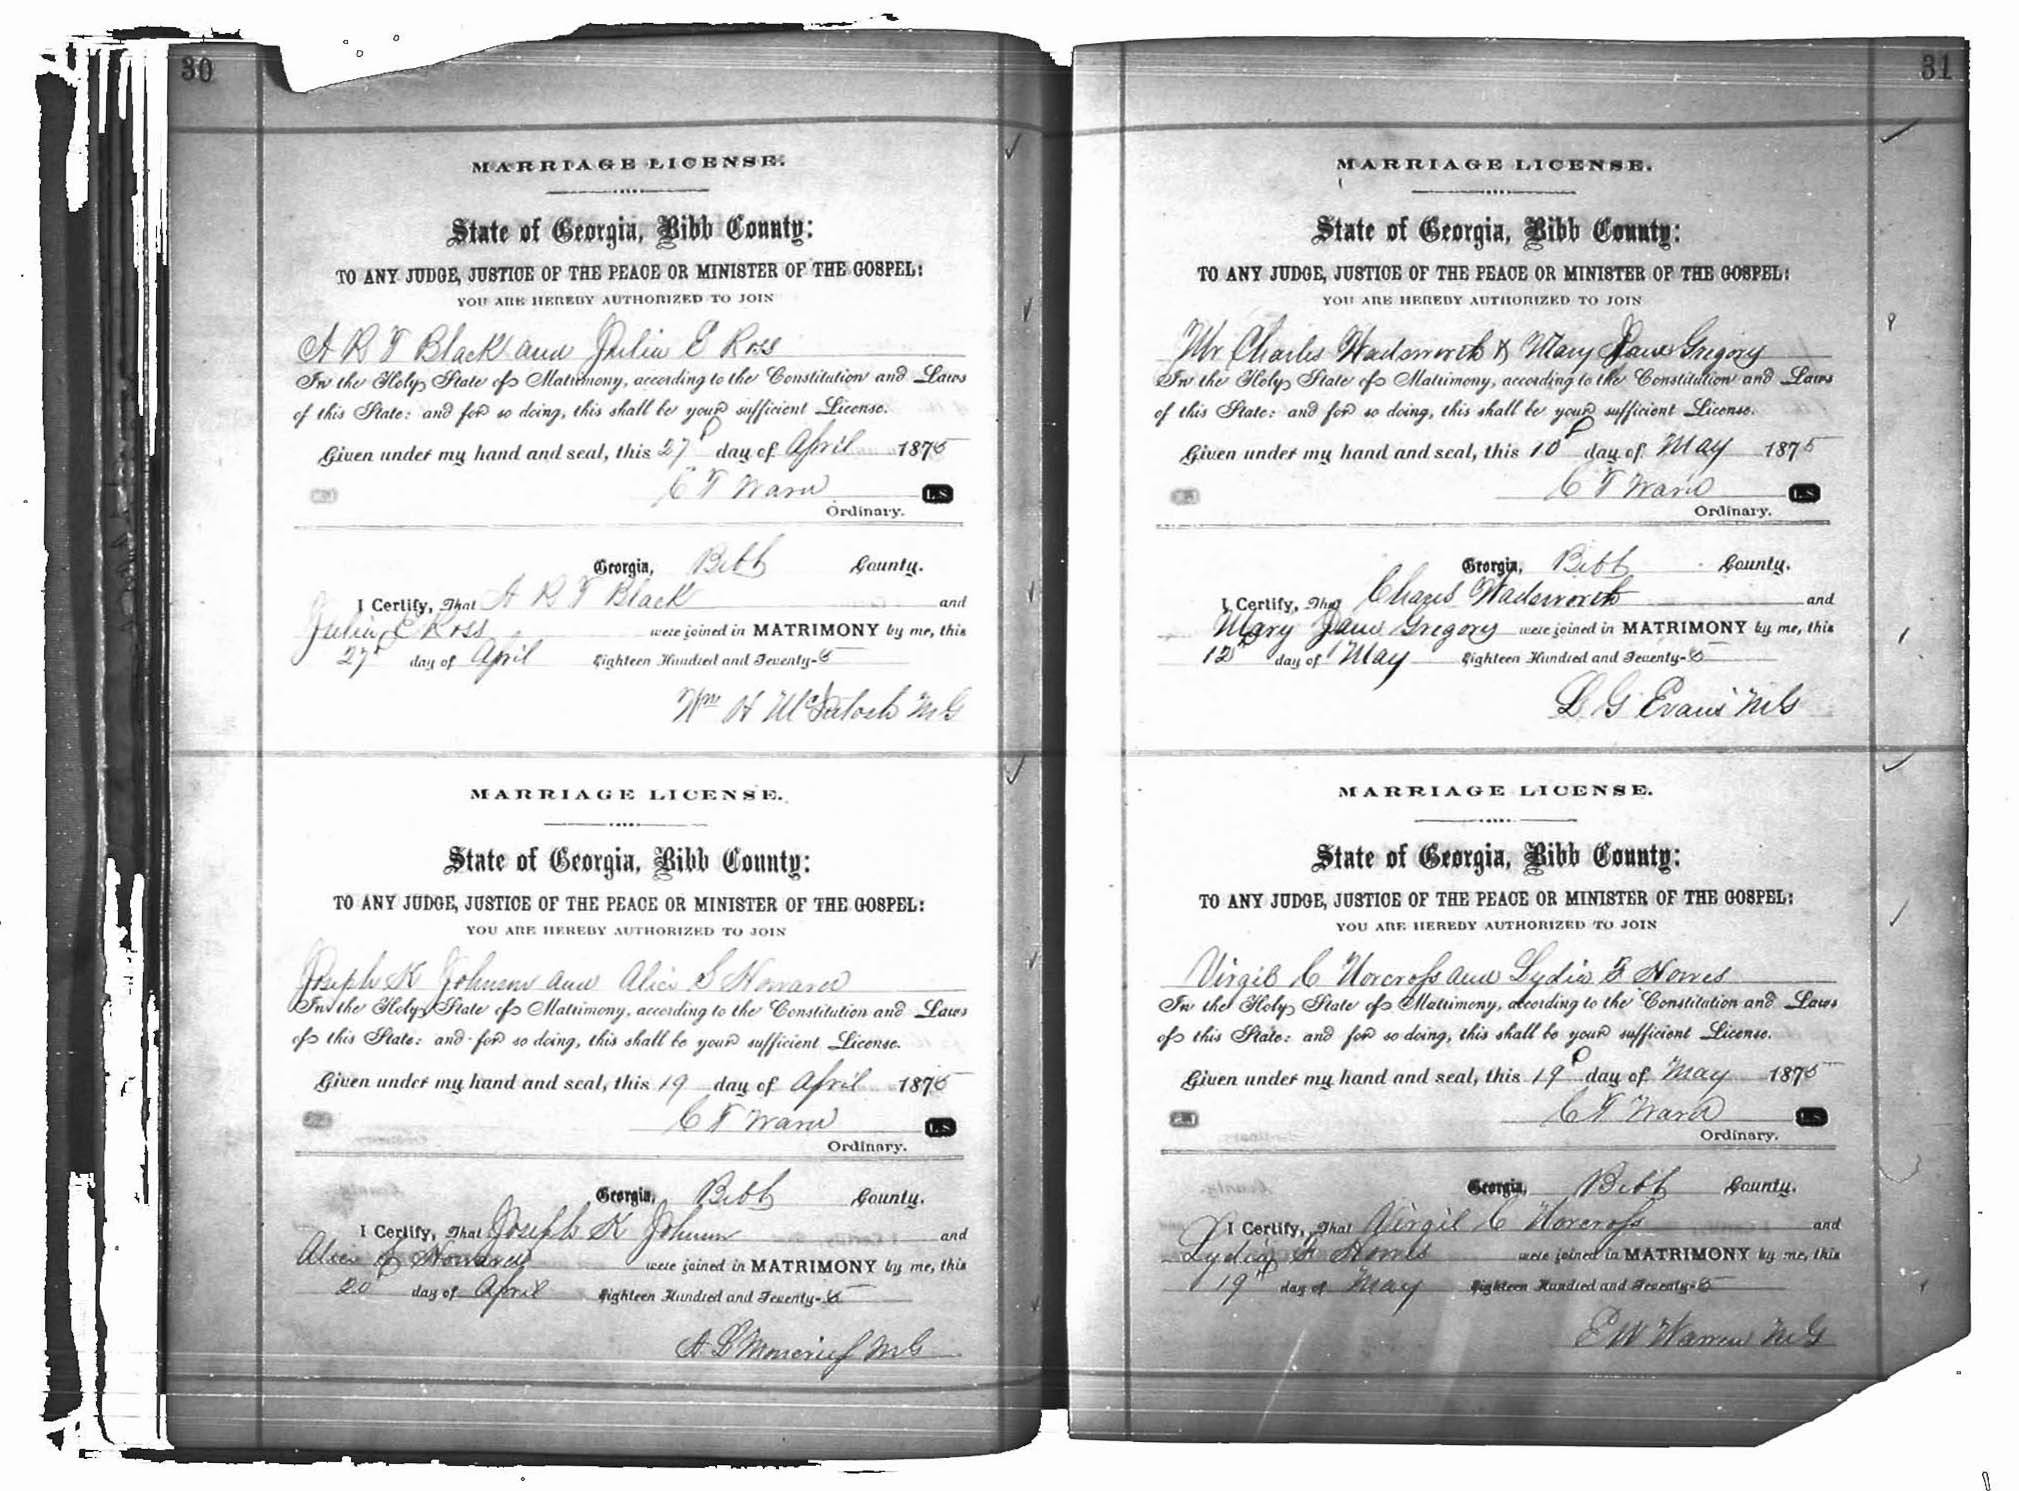 30
MARRIAGE LICENSE.
State of Georgia, Bibb County:
TO ANY JUDGE, JUSTICE OF THE PEACE OR MINISTER OF THE GOSPEL:
YOU ARE HEREBY AUTHORIZED TO JOIN
A R T Black and Julia E Ross
In the Holy State of Matrimony, according to the Constitution and Laws
of this State: and for so doing, this shall be your sufficient License.
Given under my hand and seal, this 27th day of April 1875
C T Ward L.S.
Ordinary.
Georgia, Bibb County.
I Certify, That A R T Black and
Julia E Ross were joined in MATRIMONY by me, this
27th day of April Eighteen Hundred and Seventy-5
Wm H McIntosh MG
MARRIAGE LICENSE.
State of Georgia, Bibb County:
TO ANY JUDGE, JUSTICE OF THE PEACE OR MINISTER OF THE GOSPEL:
YOU ARE HEREBY AUTHORIZED TO JOIN
Joseph K Johnson and Alice S Howard
In the Holy State of Matrimony, according to the Constitution and Laws
of this State: and for so doing, this shall be your sufficient License.
Given under my hand and seal, this 19 day of April 1875
C T Ward L.S.
Ordinary.
Georgia, Bibb County.
I Certify, That Joseph K Johnson and
Alice S Howard were joined in MATRIMONY by me, this
20th day of April Eighteen Hundred and Seventy-5
A L Moncrief MG
31
MARRIAGE LICENSE.
State of Georgia, Bibb County:
TO ANY JUDGE, JUSTICE OF THE PEACE OR MINISTER OF THE GOSPEL:
YOU ARE HEREBY AUTHORIZED TO JOIN
Mr Charles Wadsworth & Mary Jane Gregory
In the Holy State of Matrimony, according to the Constitution and Laws
of this State: and for so doing, this shall be your sufficient License.
Given under my hand and seal, this 10th day of May 1875
C T Ward L.S.
Ordinary.
Georgia, Bibb County.
I Certify, That Charls Wadsworth and
Mary Jane Gregory were joined in MATRIMONY by me, this
12th day of May Eighteen Hundred and Seventy-5
L G Evans MG
MARRIAGE LICENSE.
State of Georgia, Bibb County:
TO ANY JUDGE, JUSTICE OF THE PEACE OR MINISTER OF THE GOSPEL:
YOU ARE HEREBY AUTHORIZED TO JOIN
Virgil C Norcross and Lydia F
In the Holy State of Matrimony, according to the Constitution and Laws
of this State: and for so doing, this shall be your sufficient License.
Given under my hand and seal, this 19th day of May 1875
C T Ward L.S.
Ordinary.
Georgia, Bibb County.
I Certify, That Virgil C Norcross and
Lydia F were joined in MATRIMONY by me, this
19th day of May Eighteen Hundred and Seventy-5
E W Warren MG